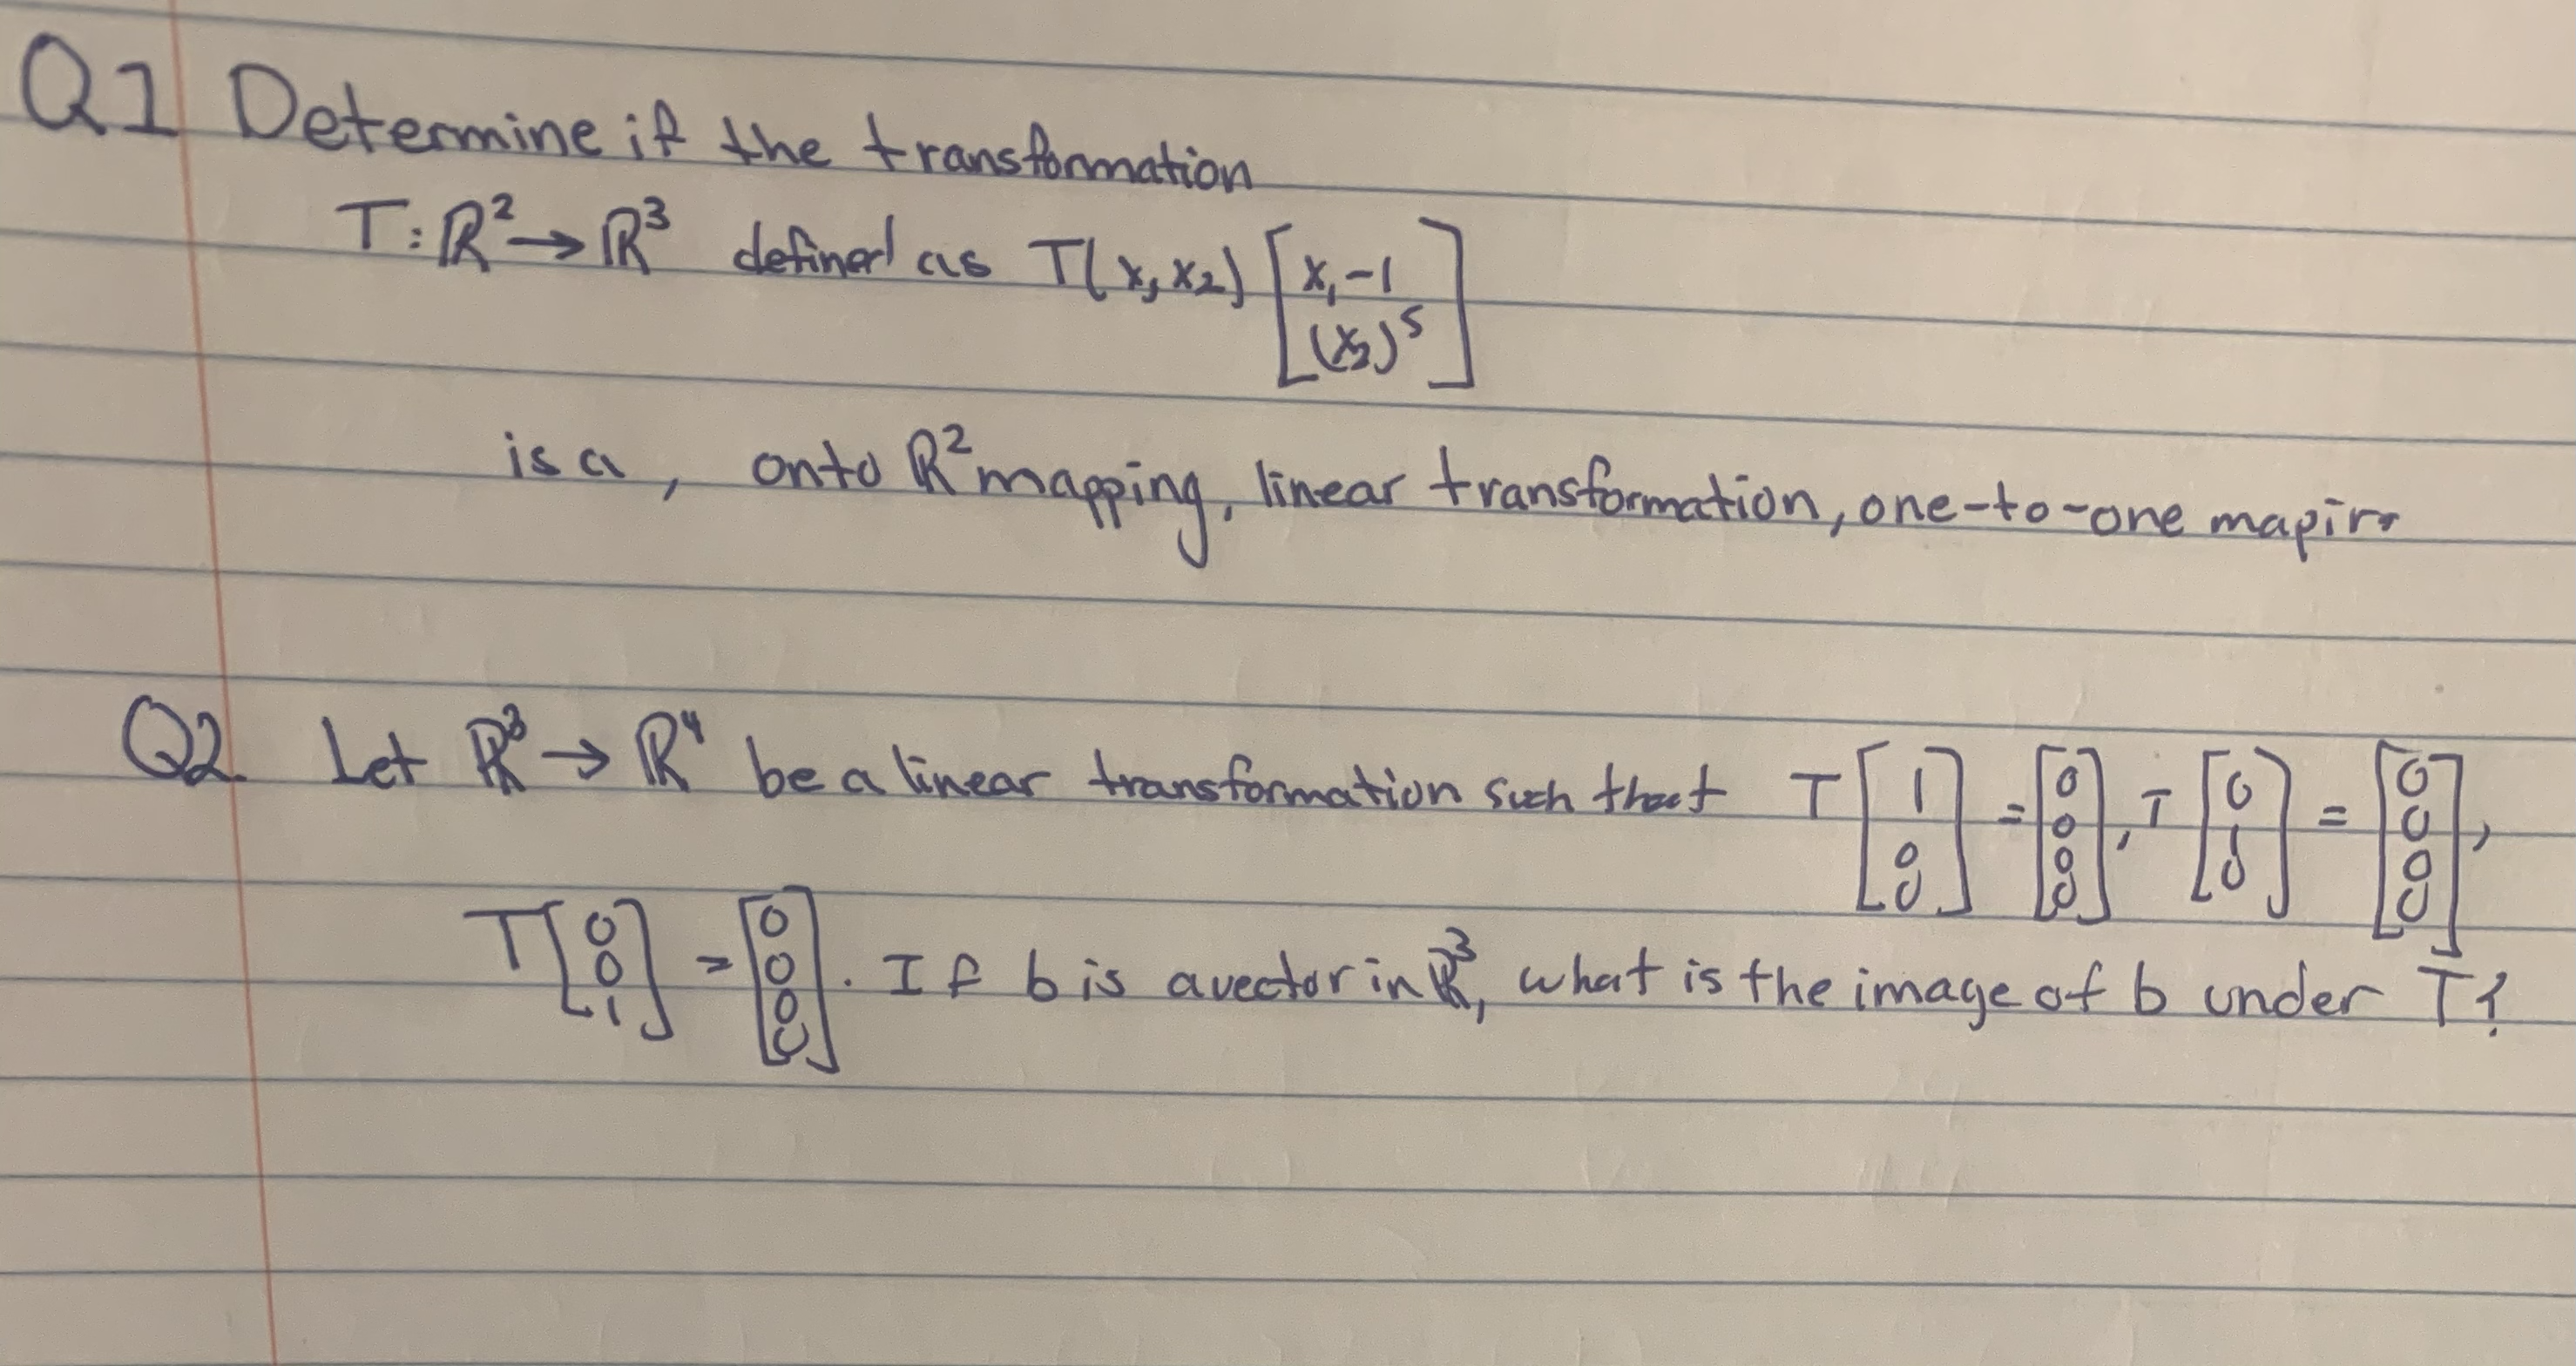 Q1 Determine if the transformation
T: ℝ² → ℝ³ defined as T(x, x₂) [x₁-1
(x₂)⁵]
is a, onto ℝ² mapping, linear transformation, one-to-one mapin
Q2. Let ℝ³ → ℝ⁴ be a linear transformation such that T[1 0 0] = [0 0 0 0], T[0 1 0] = [0 0 0 0],
T[0 0 1] = [0 0 0 0]. If b is a vector in ℝ³, what is the image of b under T?